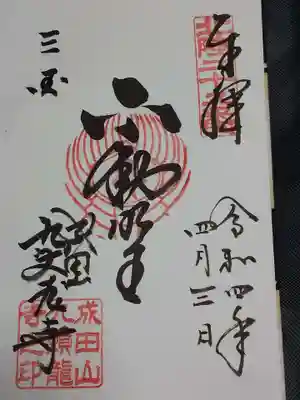 奉拝
令和四年
四月三日
不動明王
三国
成田山
九頭龍寺
成田山
九頭龍
寺之印